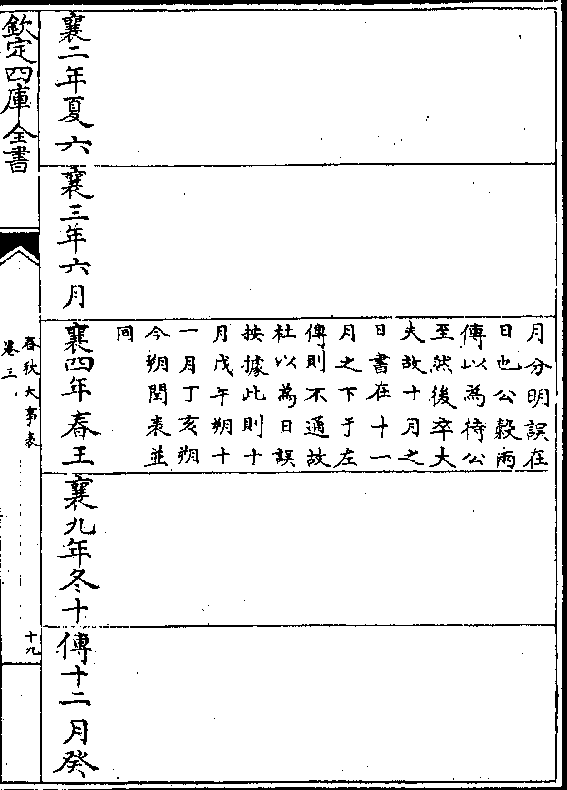 襄二年夏六
襄三年六月
月分明誤在
日也公穀兩
傳以為待公
至然後卒大
夫故十月之
日書在十一
月之下于左
傳則不通故
杜以為日誤
按據此則十
月戊午朔十
一月丁亥朔
今朔閏表並
同
襄四年春王
襄九年冬十
傳十二月癸
欽定四庫全書
春秋大事表
卷三
十九